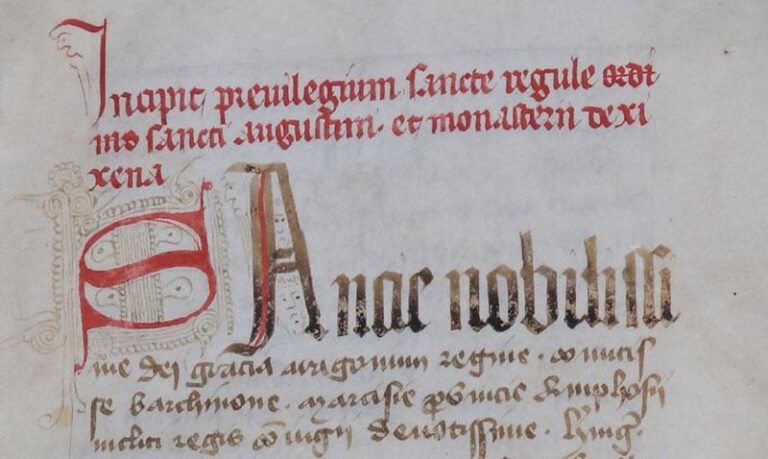 Incipit preuilegium sancte regule ordi
nis sancti augustini. et monasterii de xi
xena
SAncie nobilissi
me dei gracia aragonum regine. comitis
se barchinone. marcisie prouincie Amphosii
incliti regis coniugii deuotissime.